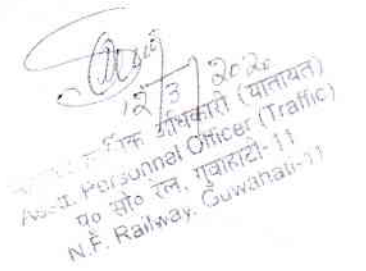 12/3/2020
कार्मिक अधिकारी (यातायात)
Asstt. Personnel Officer (Traffic)
पू० सी० रेल, गुवाहाटी-11
N.F. Railway, Guwahati-11